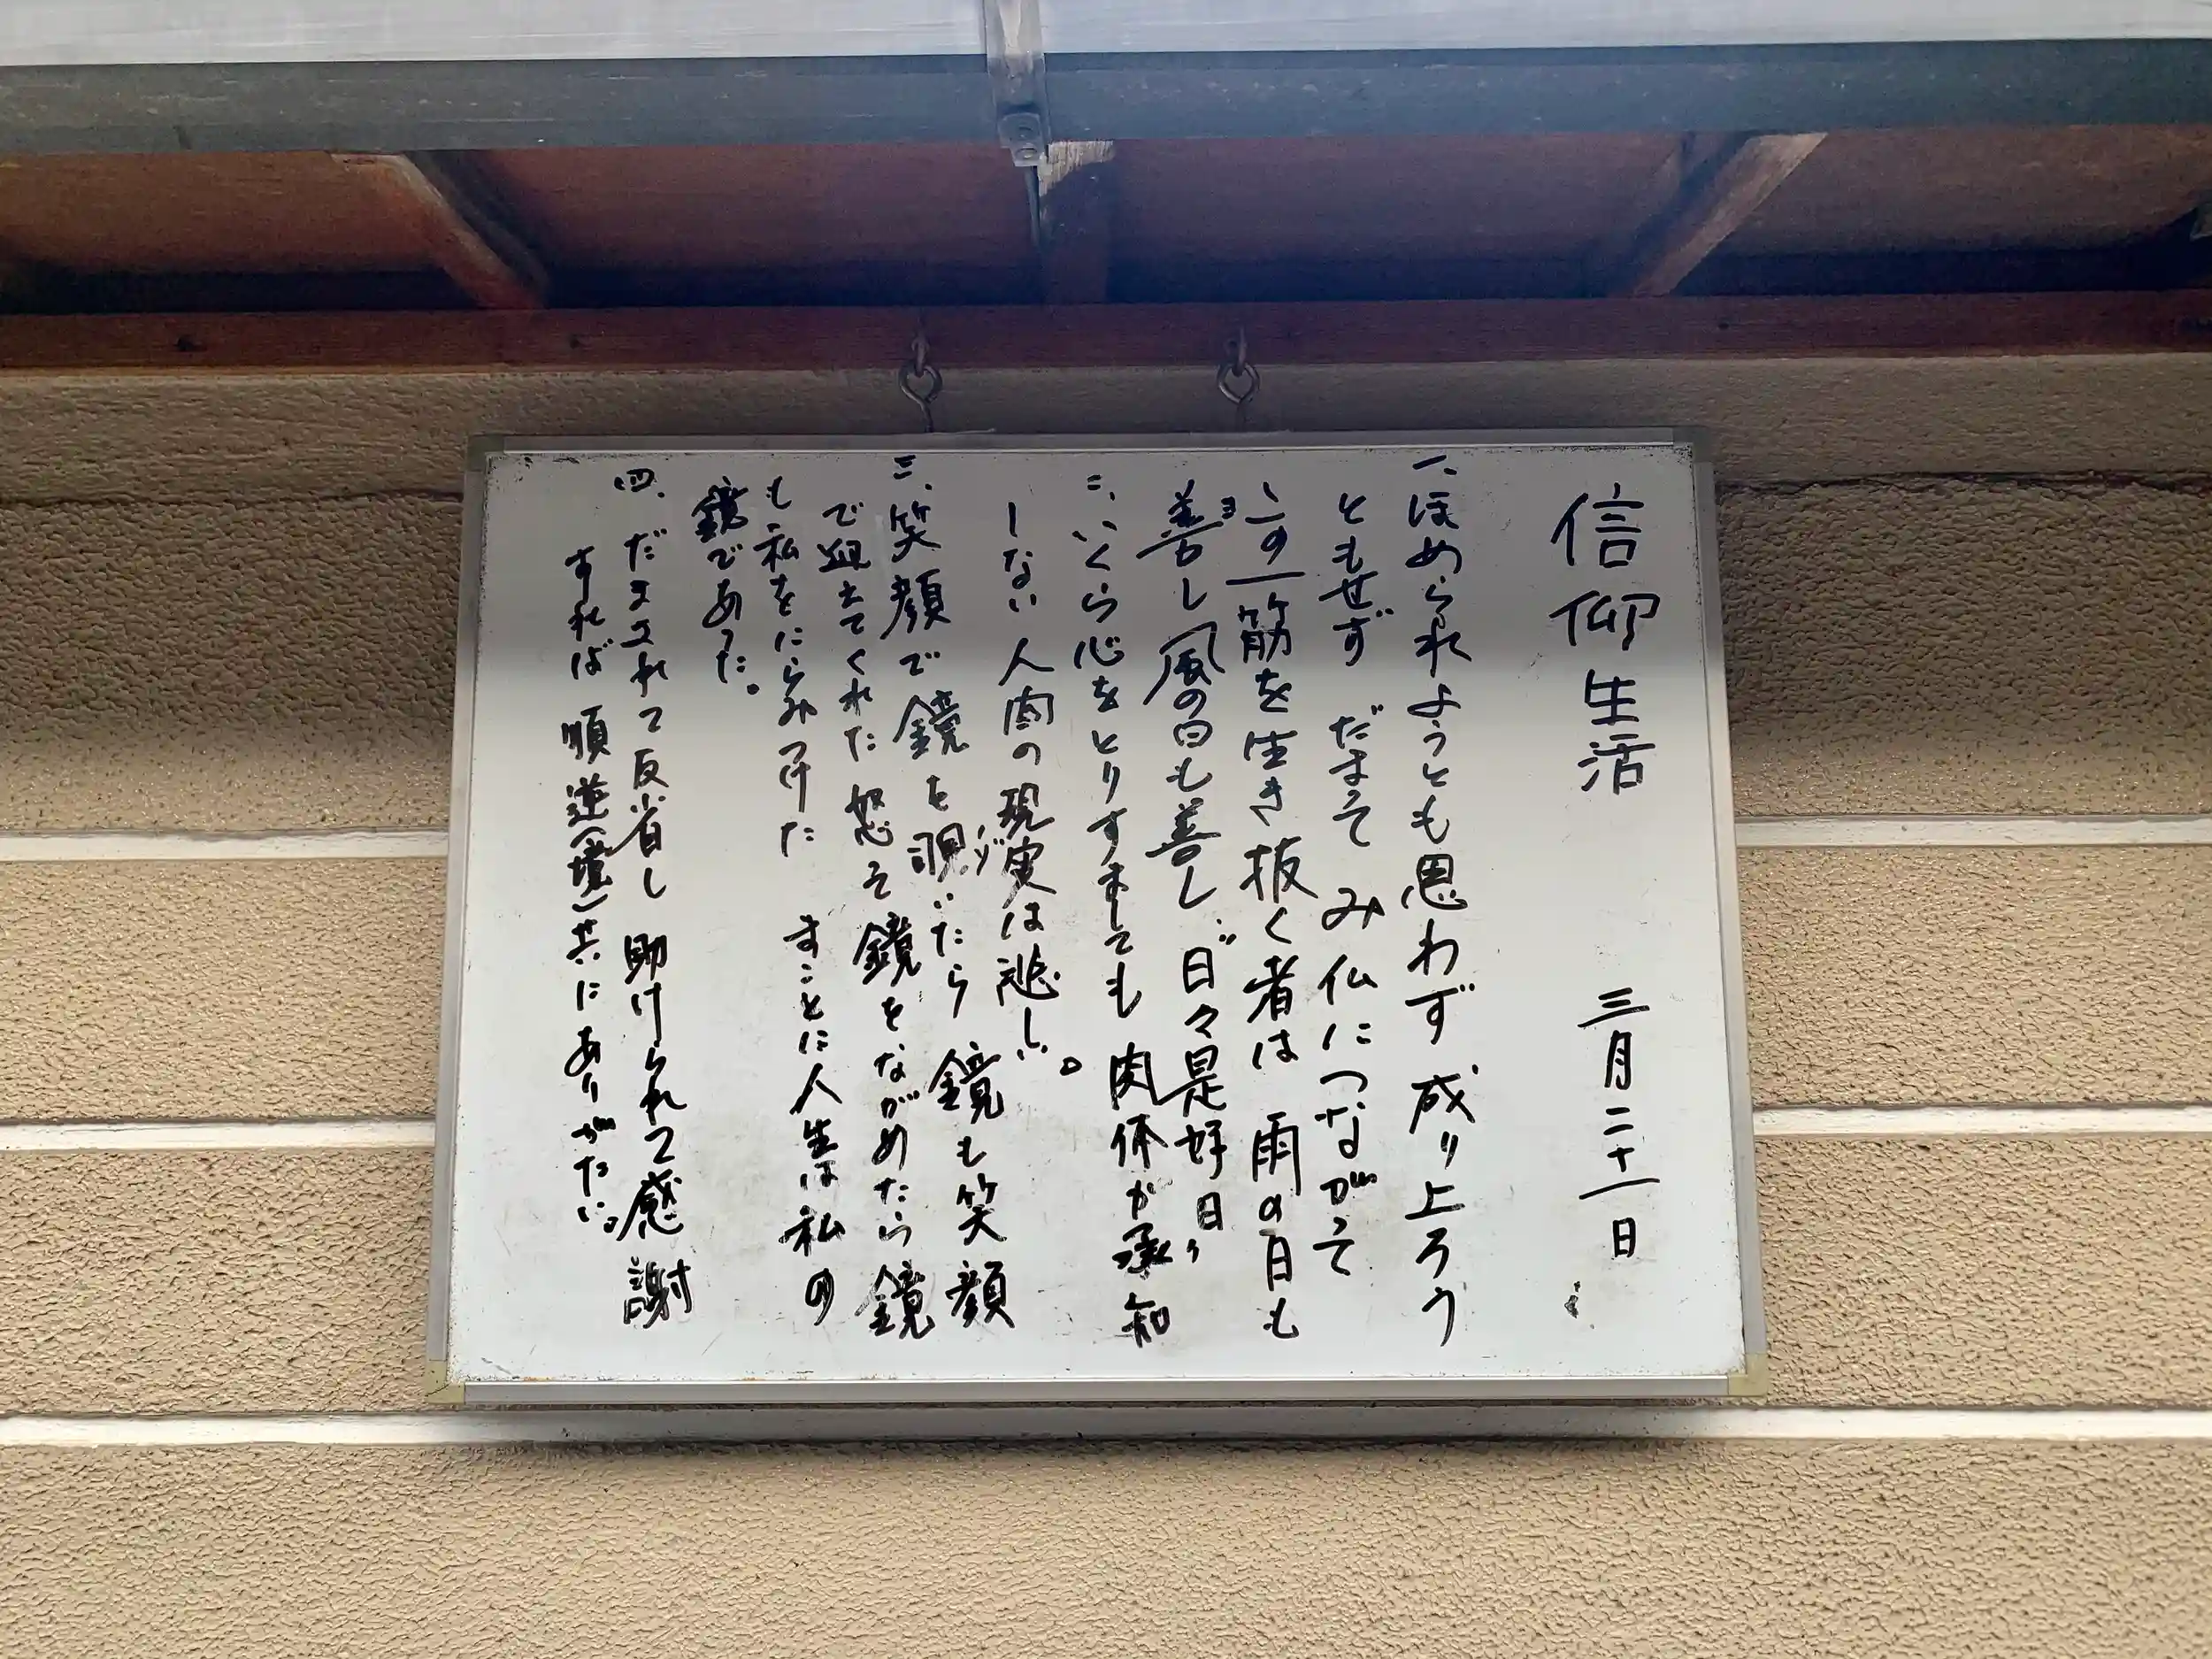 信仰生活 三月二十一日
一、ほめられようとも思わず 成り上ろう
ともせず だまって み仏につながって
この一筋を生き抜く者は 雨の日も
善し風の日も善し、〝日々是好日〟
ヨ
二、いくら心をとりすましても 肉体が承知
しない 人間の現実は悲しい。
三、笑顔で鏡を覗いたら 鏡も笑顔
ノゾ
で迎えてくれた 怒って鏡をながめたら鏡
も私をにらみつけた まことに人生は私の
鏡であった。
四、だまされて反省し 助けられて感謝
すれば 順逆(境)共にありがたい。